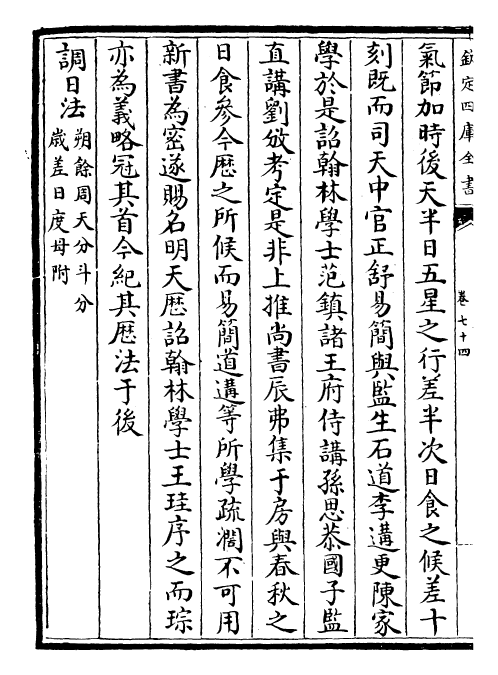 欽定四庫全書
卷七十四
氣節加時後天半日五星之行差半次日食之候差十
刻既而司天中官正舒易簡與監生石道李遘更陳家
學於是詔翰林學士范鎮諸王府侍講孫思恭國子監
直講劉攽考定是非上推尚書辰弗集于房與春秋之
日食參今歴之所候而易簡道遘等所學疏濶不可用
新書為密遂賜名明天歴詔翰林學士王珪序之而琮
亦為義略冠其首今紀其歴法于後
調日法
朔餘周天分斗分
歲差日度母附